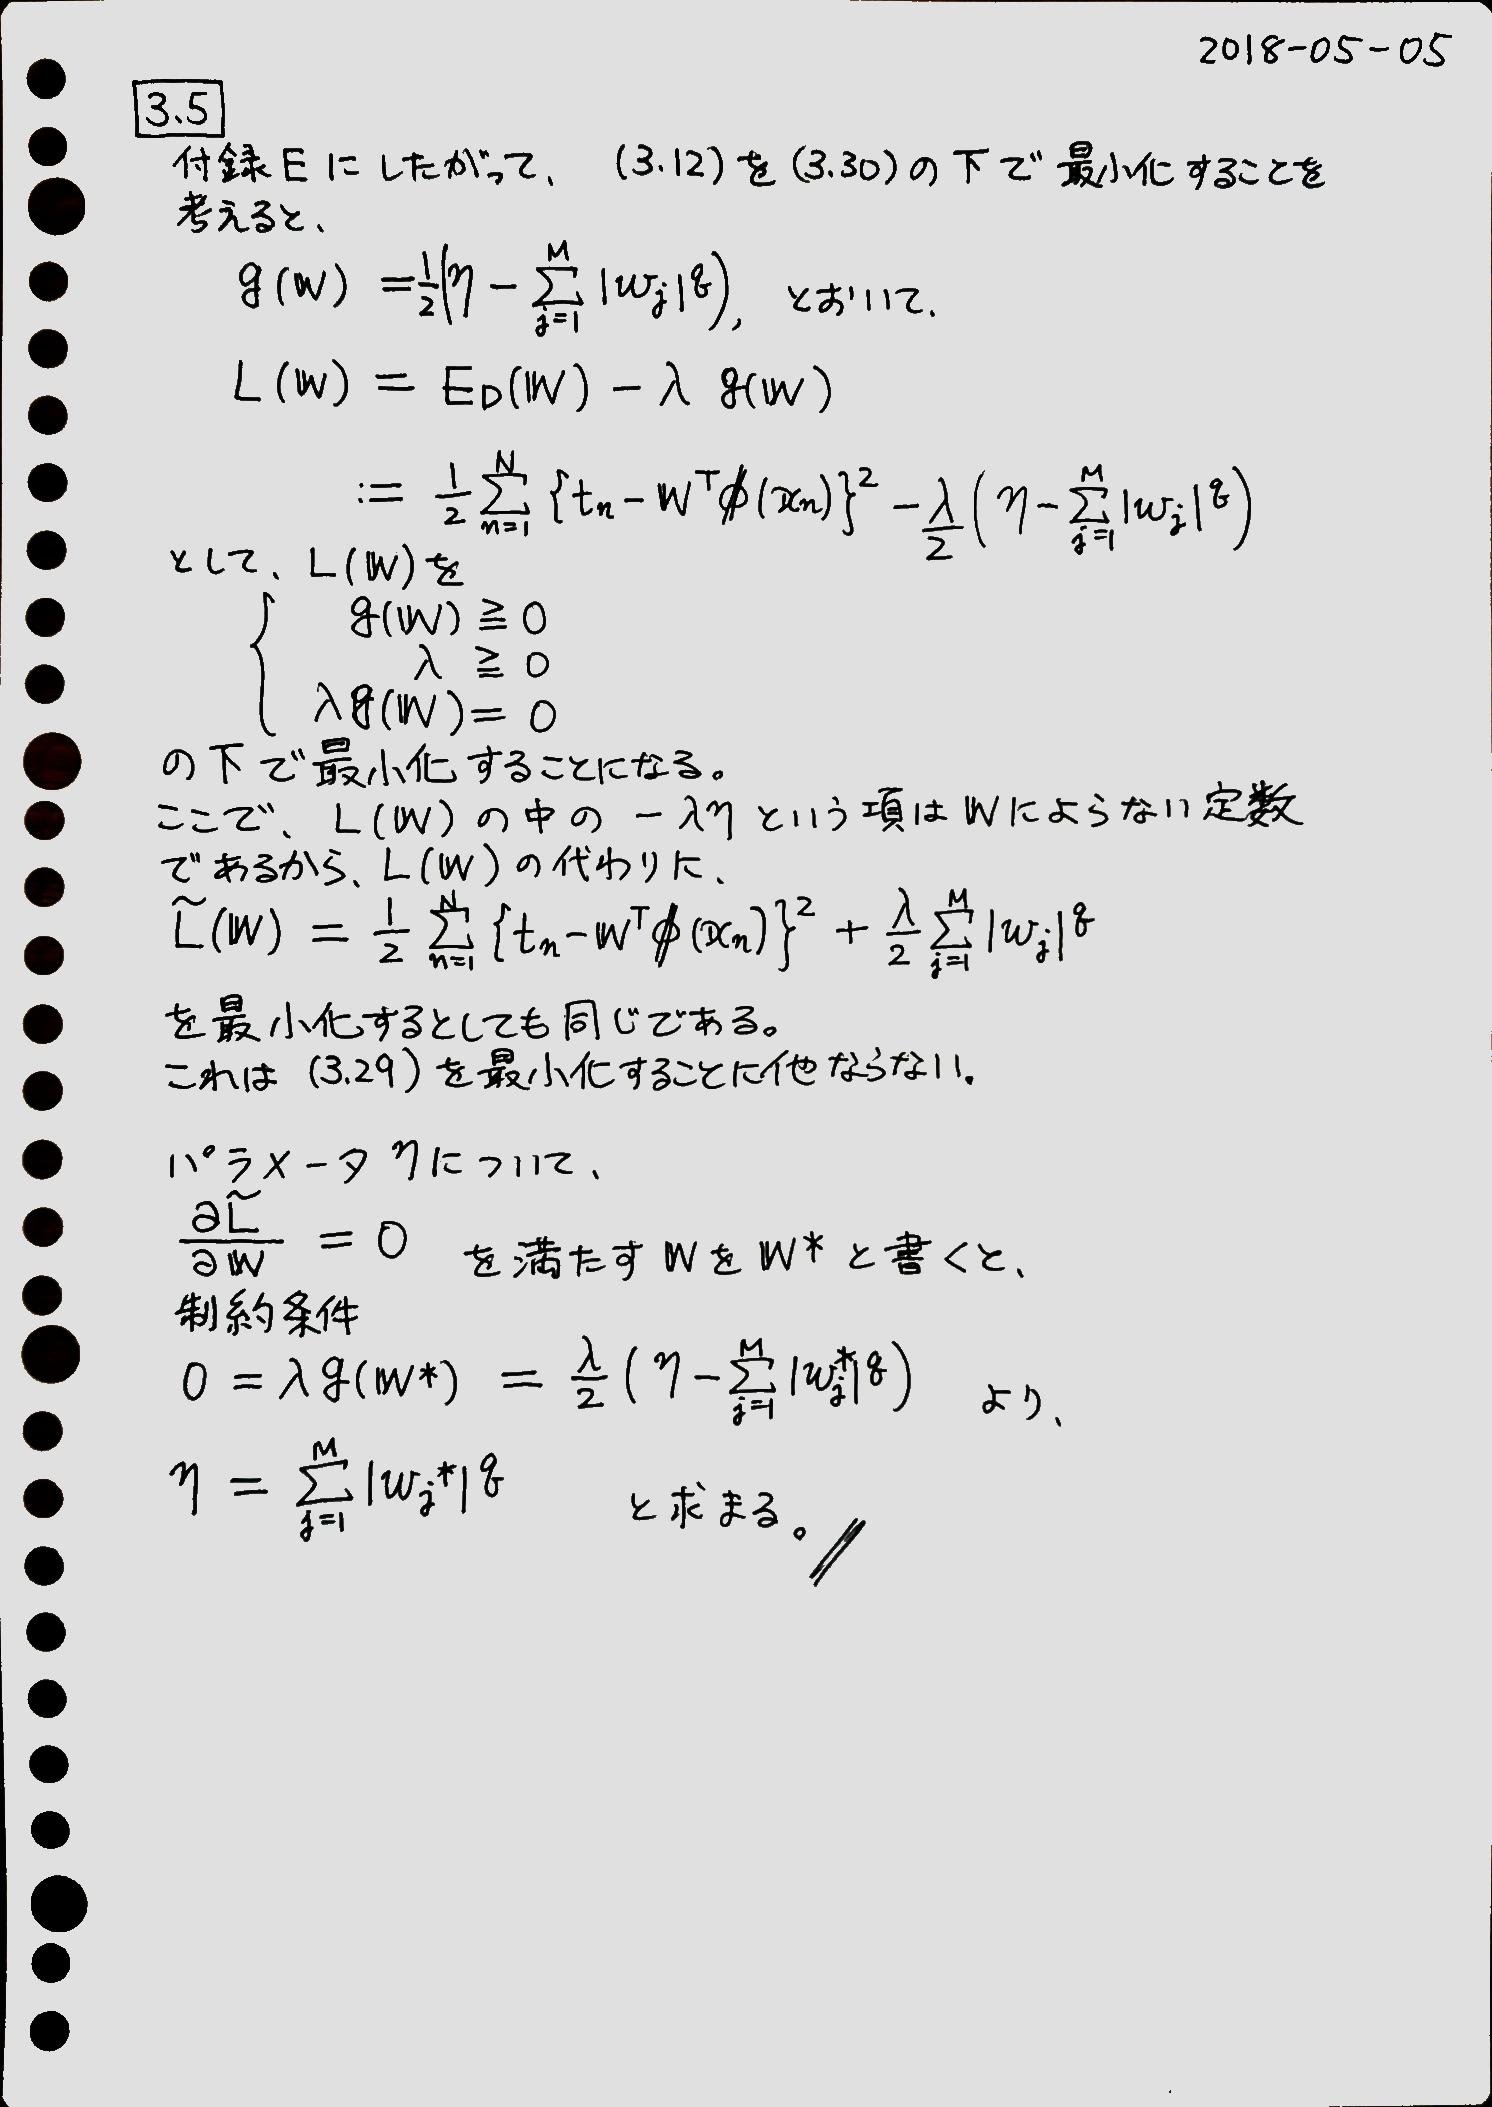 2018-05-05
3.5
付録Eにしたがって、(3.12)を(3.30)の下で最小化することを
考えると、
g(w) = 1/2(η - Σ_{j=1}^{M} |w_j|^q), とおいて、
L(w) = E_D(w) - λ g(w)
:= 1/2 Σ_{n=1}^{N} {t_n - w^T φ(x_n)}^2 - λ/2 (η - Σ_{j=1}^{M} |w_j|^q)
として、L(w)を
g(w) ≧ 0
λ ≧ 0
λg(w) = 0
の下で最小化することになる。
ここで、L(w)の中の -λη という項はwによらない定数
であるから、L(w)の代わりに、
L̃(w) = 1/2 Σ_{n=1}^{N} {t_n - w^T φ(x_n)}^2 + λ/2 Σ_{j=1}^{M} |w_j|^q
を最小化するとしても同じである。
これは (3.29)を最小化することに他ならない。
パラメータηについて、
∂L̃/∂w = 0 を満たすwをw*と書くと、
制約条件
0 = λg(w*) = λ/2 (η - Σ_{j=1}^{M} |w_j*|^q) より、
η = Σ_{j=1}^{M} |w_j*|^q と求まる。//